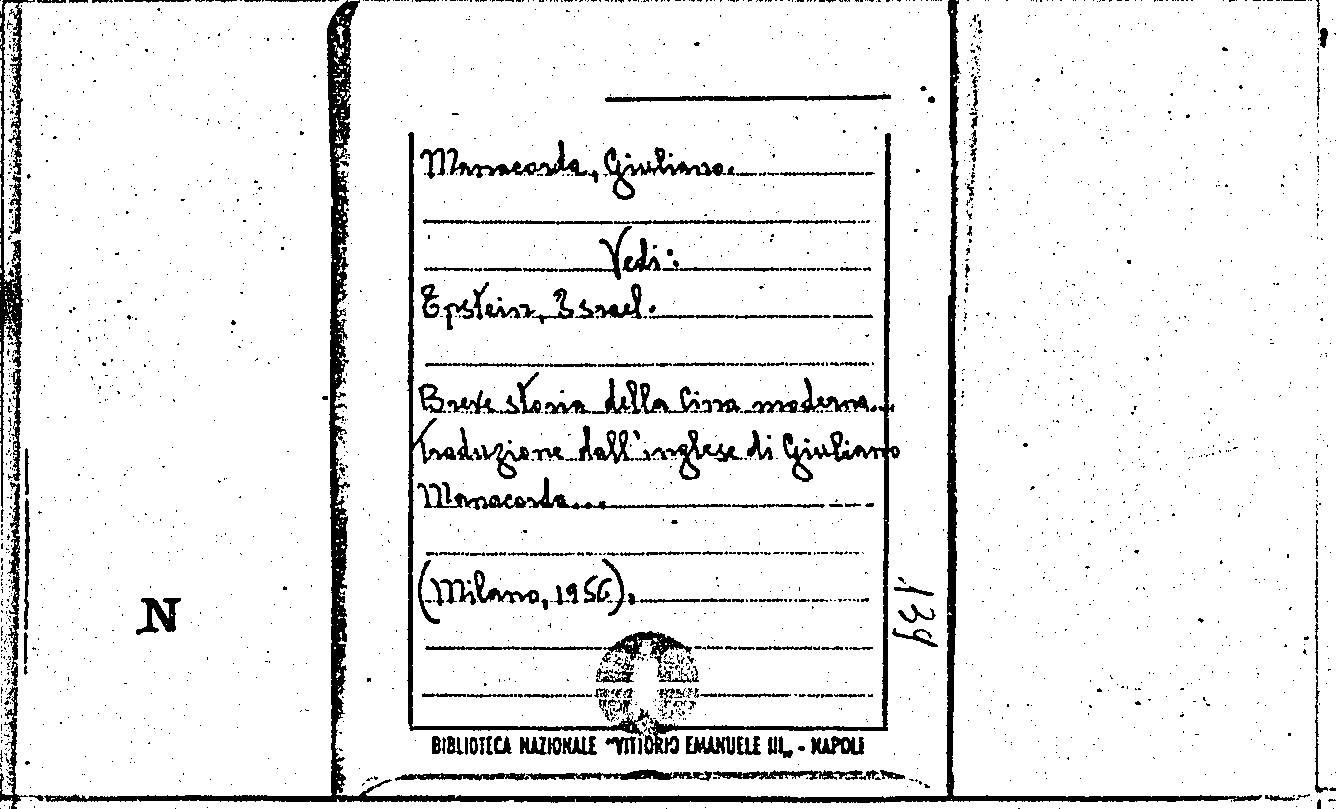 Manacorda, Giuliano.
Vedi:
Epstein, Israel.
Breve storia della Cina moderna...
Traduzione dall'inglese di Giuliano
Manacorda...
(Milano, 1956).
139
N
BIBLIOTECA NAZIONALE "VITTORIO EMANUELE III„ - NAPOLI